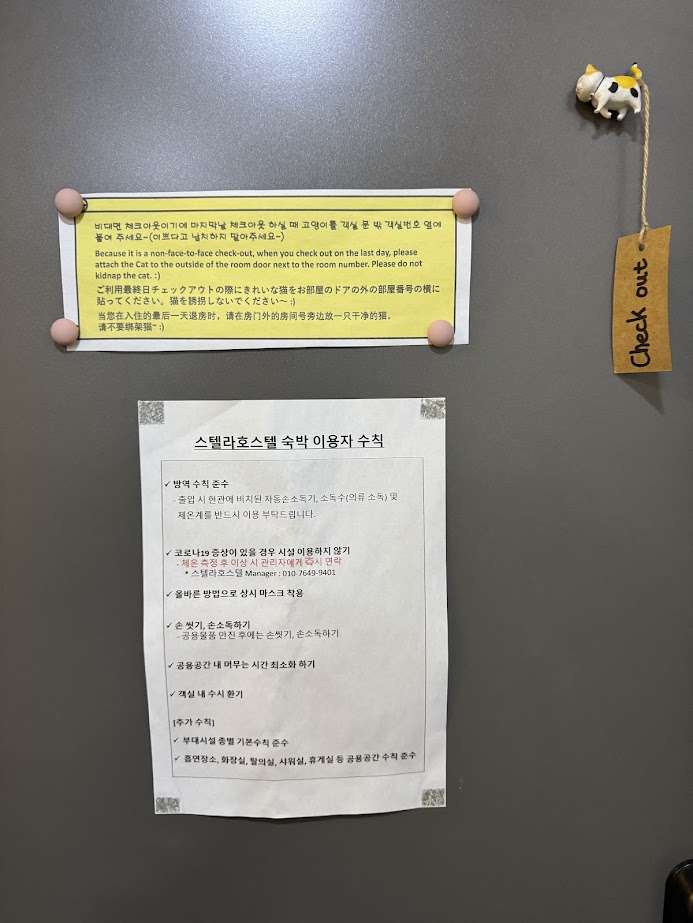 비대면 체크아웃이기에 마지막날 체크아웃 하실 때 고양이를 객실 문 밖 객실번호 옆에
붙여 주세요~(이쁘다고 납치하지 말아주세요~)
Because it is a non-face-to-face check-out, when you check out on the last day, please
attach the Cat to the outside of the room door next to the room number. Please do not
kidnap the cat. :)
ご利用最終日チェックアウトの際にきれいな猫をお部屋のドアの外の部屋番号の横に
貼ってください。猫を誘拐しないでください～ :)
当您在入住的最后一天退房时，请在房门外的房间号旁边放一只干净的猫。
请不要绑架猫~ :)
Check out
스텔라호스텔 숙박 이용자 수칙
✓ 방역 수칙 준수
- 출입 시 현관에 비치된 자동손소독기, 소독수(의류 소독) 및
체온계를 반드시 이용 부탁드립니다.
✓ 코로나19 증상이 있을 경우 시설 이용하지 않기
- 체온 측정 후 이상 시 관리자에게 즉시 연락
* 스텔라호스텔 Manager : 010-7649-9401
✓ 올바른 방법으로 상시 마스크 착용
✓ 손 씻기, 손소독하기
- 공용물품 만진 후에는 손씻기, 손소독하기
✓ 공용공간 내 머무는 시간 최소화 하기
✓ 객실 내 수시 환기
[추가 수칙]
✓ 부대시설 종별 기본수칙 준수
✓ 흡연장소, 화장실, 탈의실, 샤워실, 휴게실 등 공용공간 수칙 준수